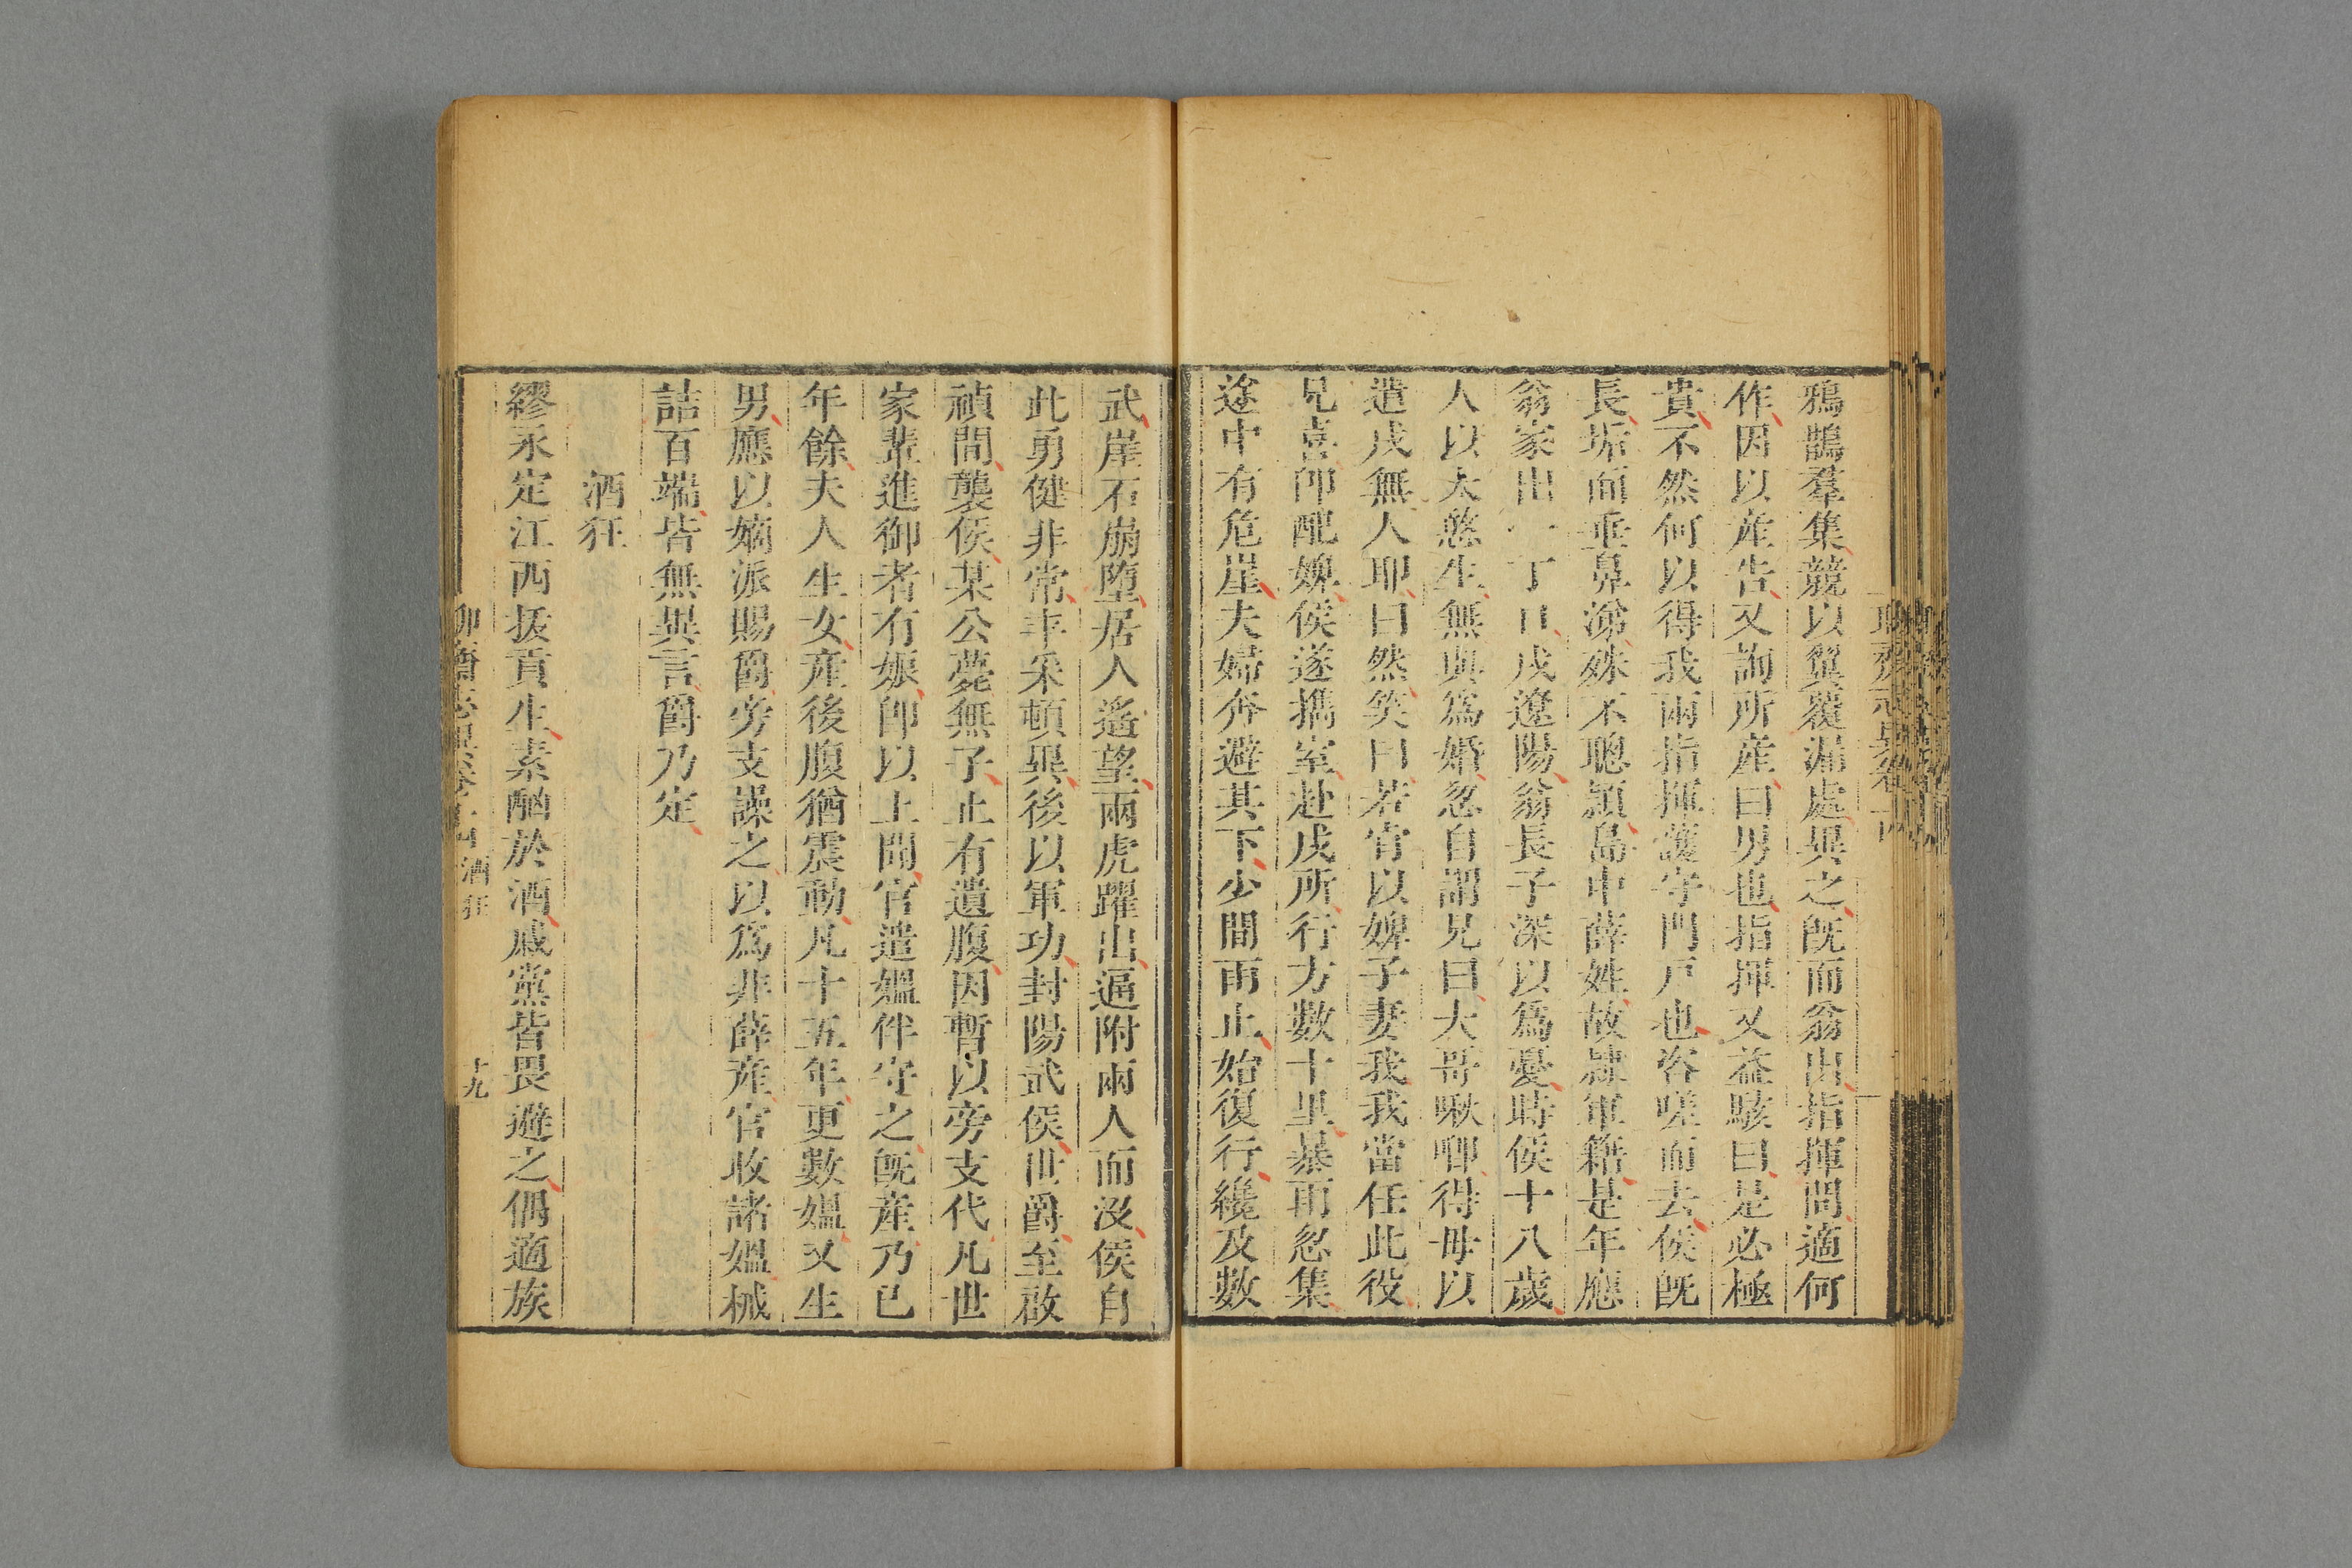 鴉鵲羣集競以翼覆漏處異之旣而翁出指揮問適何
作因以産告又詢所産曰男也指揮又益駭曰是必極
貴不然何以得我兩指揮護守門戸也咨嗟而去侯旣
長垢面垂鼻涕殊不聰頴島中薛姓故隷軍籍是年應
翁家出一丁口戍遼陽翁長子深以爲憂時侯十八歲
人以太憨生無與爲婚忽自謂兄曰大哥啾唧得毋以
遣戍無人耶曰然笑曰若肯以婢子妻我我當任此役
兄喜卽配婢侯遂攜室赴戍所行方數十里暴雨忽集
途中有危崖夫婦奔避其下少間雨止始復行纔及數
武崖石崩墮居人遙望兩虎躍出逼附兩人而沒侯自
此勇健非常丰采頓異後以軍功封陽武侯世爵至啟
禎間襲侯某公薨無子止有遺腹因暫以旁支代凡世
家輩進御者有娠卽以上聞官遣媼伴守之旣産乃已
年餘夫人生女産後腹猶震動凡十五年更數媼又生
男應以嫡派賜爵旁支譟之以爲非薛産官收諸媼械
詰百端皆無異言爵乃定
酒狂
繆永定江西拔貢生素酗於酒戚黨皆畏避之偶適族
酒狂
十九